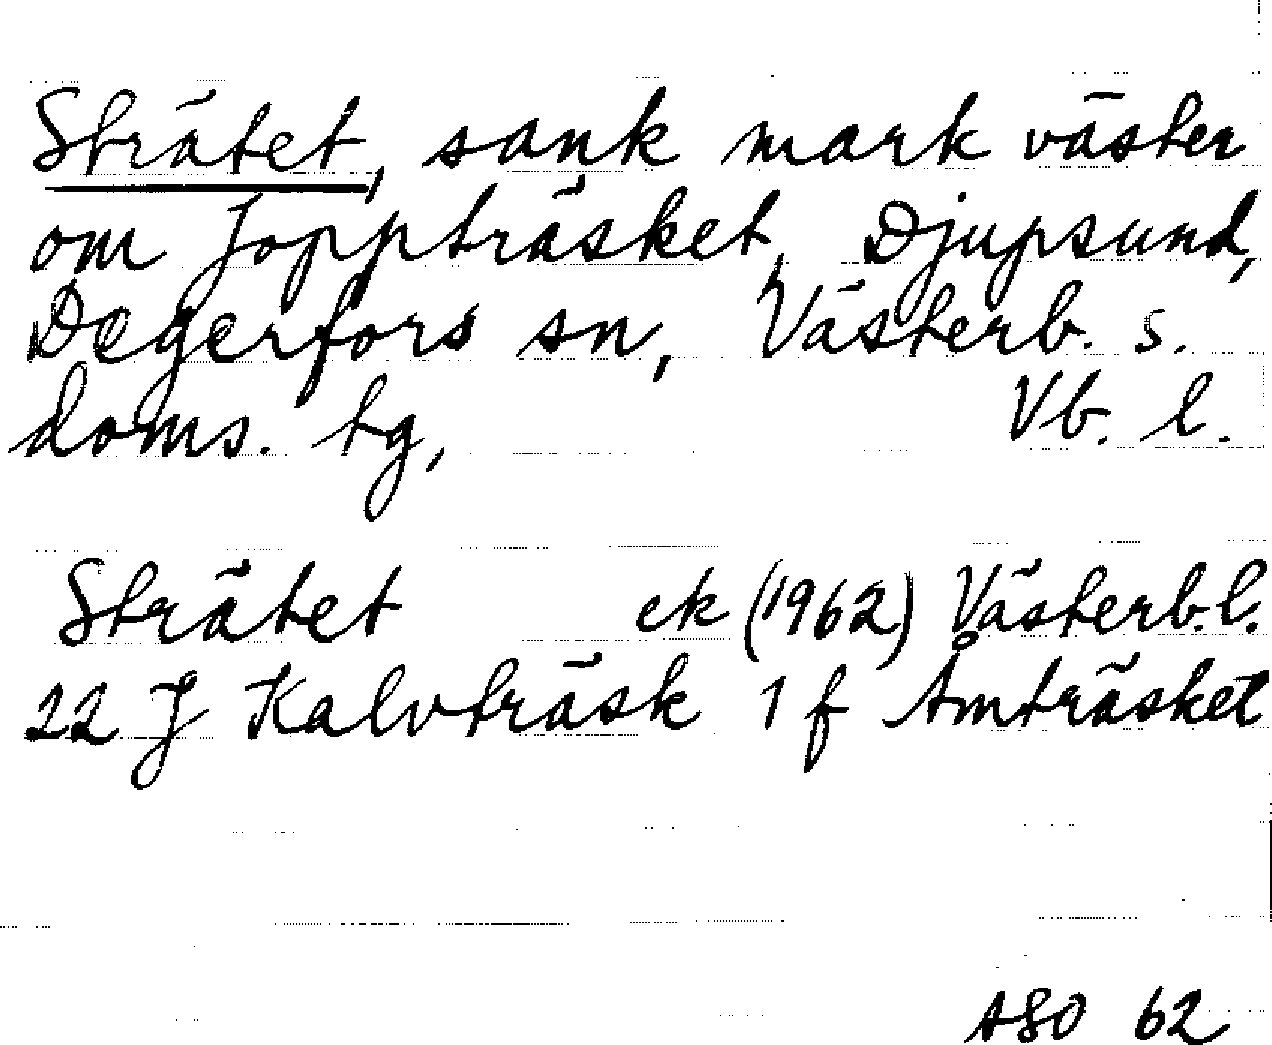 Strätet, sank mark väster
om Joppträsket, Djupsund,
Degerfors sn, Västerb. s.
doms. tg, Vb. l.
Strätet ek (1962) Västerb. l.
22 J Kalvträsk 1 f Åmträsket
ASO 62